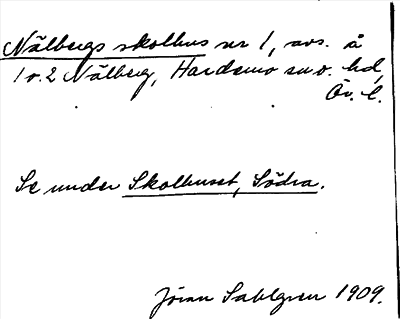 Nälbergs skolhus nr 1, avs. å
1 o. 2 Nälberg, Hardemo sn o. hd,
Ör. l.
Se under Skolhuset, Södra.
Jöran Sahlgren 1909.